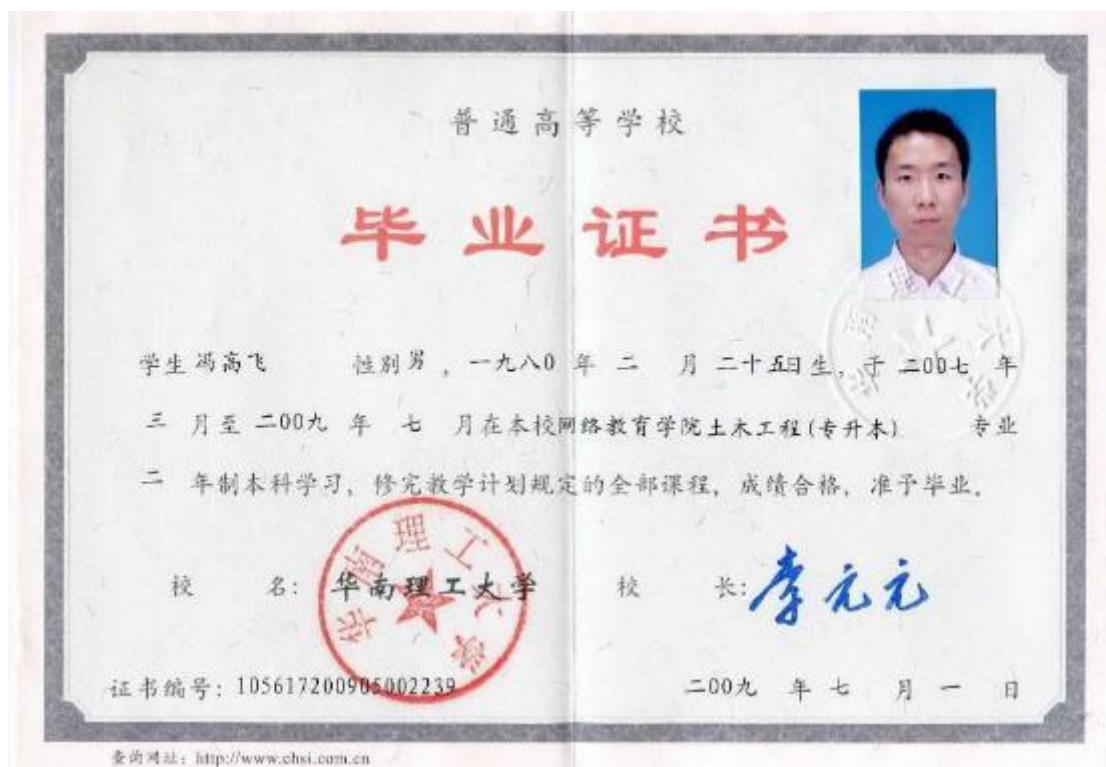 普通高等学校
毕业证书
学生 冯高飞 性别 男 , 一九八0 年 二 月 二十五日生, 于 二00七 年
三 月至 二00九 年 七 月在本校网络教育学院土木工程(专升本) 专业
二 年制本科学习, 修完教学计划规定的全部课程, 成绩合格, 准予毕业.
校 名: 华南理工大学 校 长: 李元元
华南理工大学
证书编号: 105617200905002239 二00九 年 七 月 一 日
查询网址: http://www.chsi.com.cn